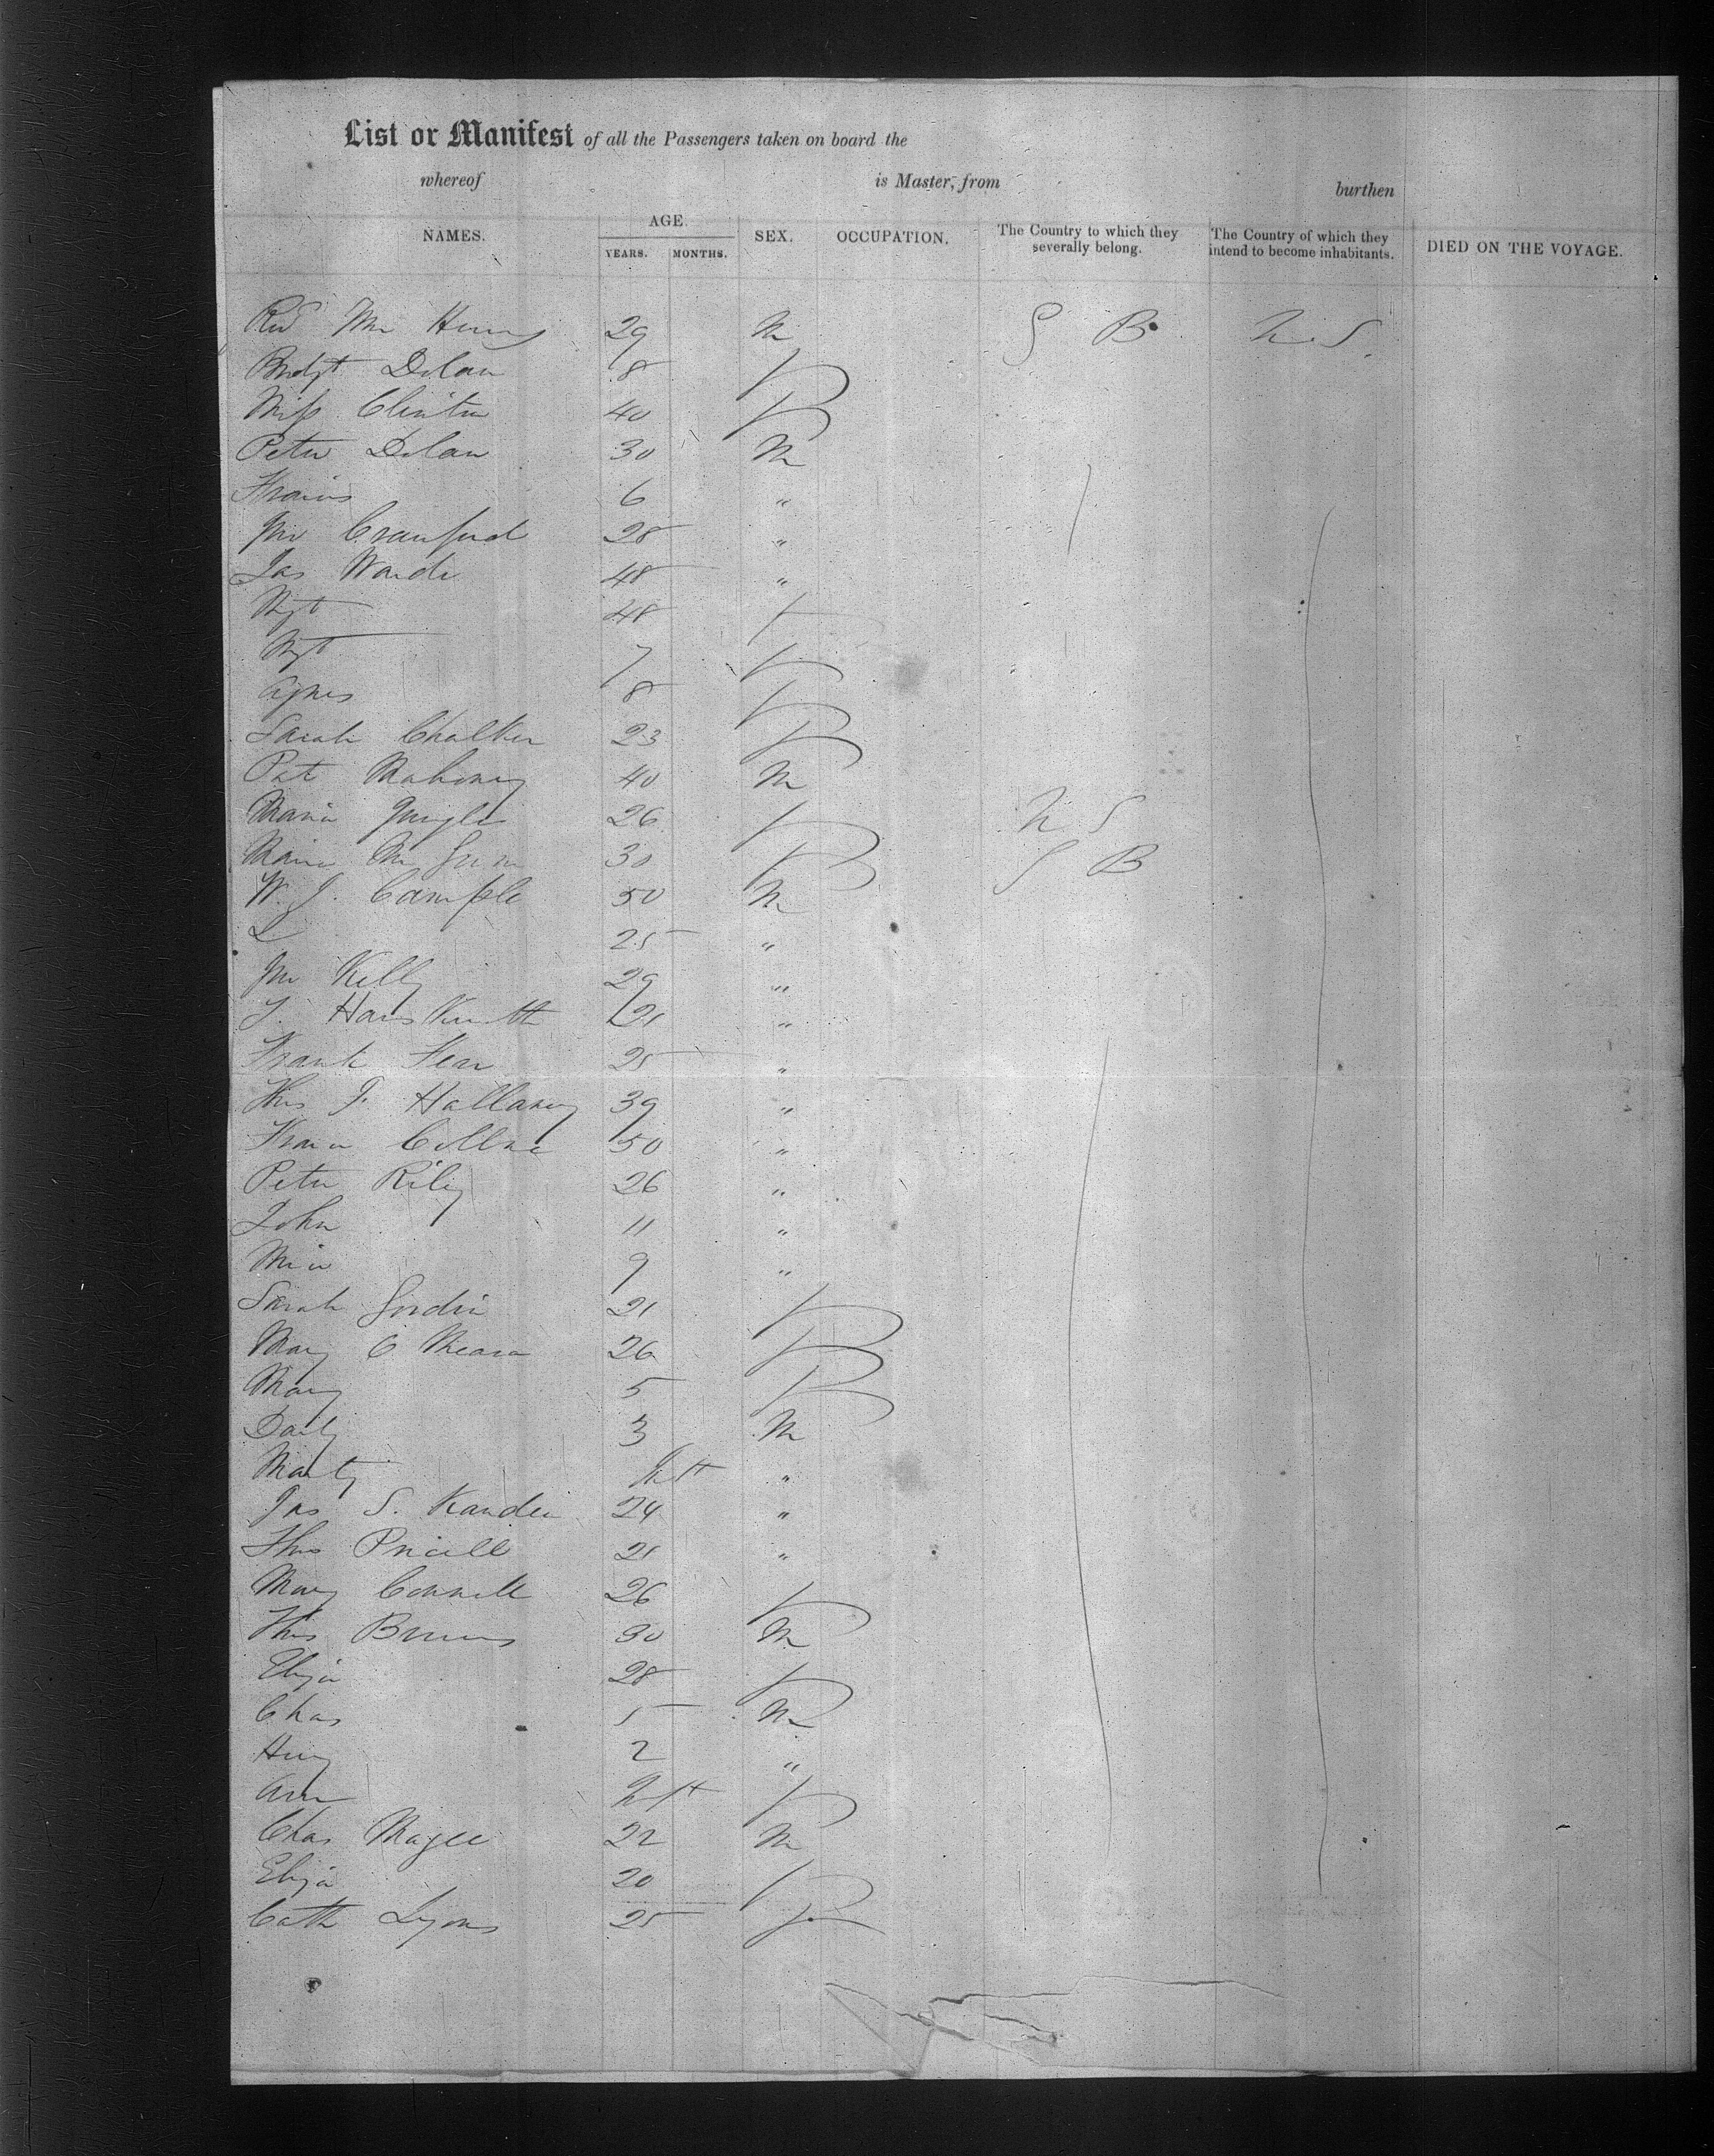 List or Manifest of all the Passengers taken on board the
whereof is Master, from burthen
NAMES. AGE. YEARS. MONTHS. SEX. OCCUPATION. The Country to which they severally belong. The Country of which they intend to become inhabitants. DIED ON THE VOYAGE.
29 M G B U.S.
Bridgt Dolan 8 F
Miss Clinton 40 F
Peter Dolan 30 M
Francis 6 "
Jno Crawford 28 "
Jas Warde 48 "
Mgt 48 F
Mgt 7 F
Agnes 8 F
Sarah Chalker 23 F
Pat Mahoney 40 M
Maria 26 F U S
30 F G B
W. J. Campble 50 M
L 25 "
Jno Kelly 29 "
21 "
Frank 25 "
Thos F. Hallaway 39 "
50 "
Peter Riley 26 "
John 11 "
9 "
Sarah Gordin 21 F
Mary O Meara 26 F
Mary 5 F
3 M
Marty Inft "
Jas S. 24 "
Thos 21 "
Mary Connell 26 F
Thos 30 M
Eliza 28 F
Chas 5 M
2 "
Ann Inft F
Chas Magee 22 M
Eliza 20 F
Cath Lyons 25 F